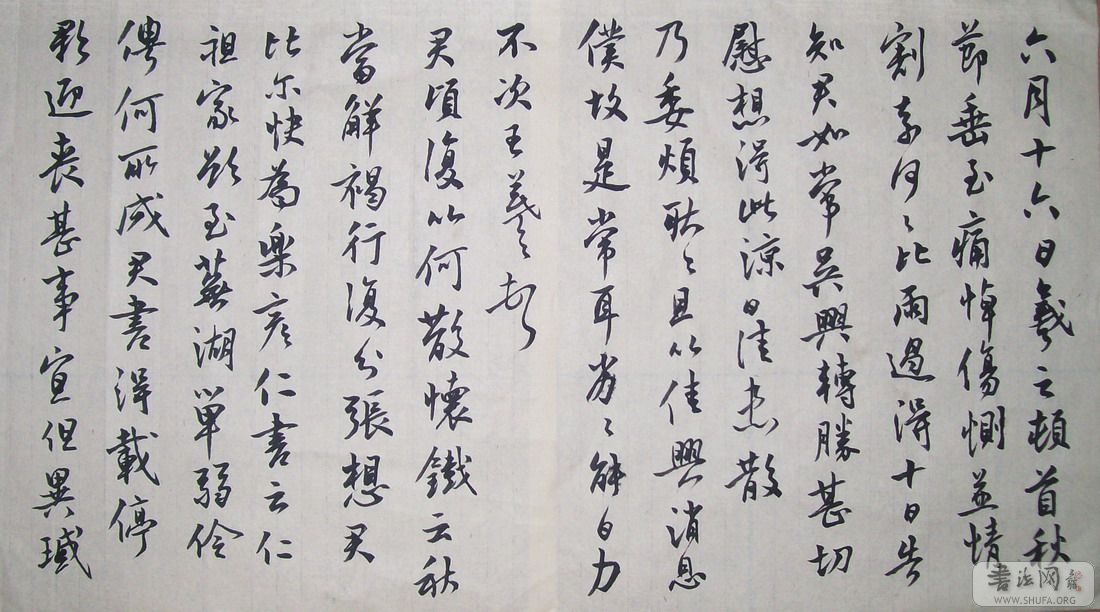 六月十六日羲之頓首秋
節垂至痛悼傷惻益情
割奈何〻比雨過得十日告
知君如常吳興轉勝甚切
慰想得此涼日佳患散
乃委煩耿〻且以佳興消息
僕故是常耳劣〻解日力
不次王羲之報
君頃復以何散懷鐵云秋
當解褐行復分張想君
比尔快為樂彥仁書云仁
祖家欲至蕪湖單弱伶
俜何所成君書得載停
郡迎喪甚事宜但異域
書法网
WWW.SHUFA.ORG